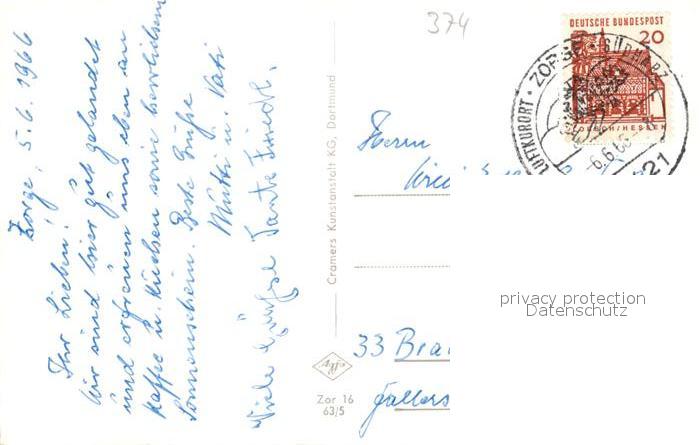 374
Zorge, 5.6.1966
Ihr Lieben!
Wir sind hier gut gelandet
und erfreuen uns eben an
Kaffee u. Kuchen sowie herrlichem
Sonnenschein. Beste Grüße
Mutti u. Vati
Viele Grüße Tante Friedl.
Cramers Kunstanstalt KG, Dortmund
DEUTSCHE BUNDESPOST
20
LORSCH/HESSEN
LUFTKURORT · ZORGE · SÜDHARZ
6.6.66
21
Herrn
privacy protection
Datenschutz
33 Bra
Gallers
Zor 16
63/5